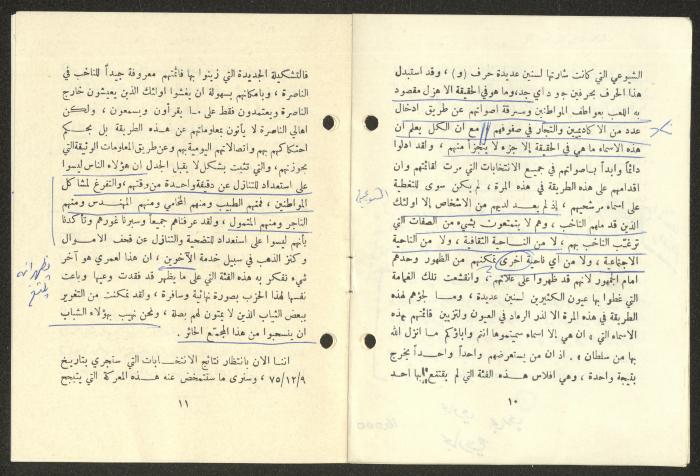 الشيوعي التي كانت شارتها لسنين عديدة حرف (و) ، وقد استبدل
هذا الحرف بحرفين ج ود اي جد، وما هو في الحقيقة الا هزل مقصود
به اللعب بعواطف المواطنين وسرقة اصواتهم عن طريق ادخال
عدد من الاكاديميين والتجار في صفوفهم مع ان الكل يعلم ان
هذه الاسماء ما هي في الحقيقة إلا جزء لا يتجزأ منهم ، ولقد ادلوا
دائماً وابداً باصواتهم في جميع الانتخابات التي مرت لقائمتهم وان
اقدامهم على هذه الطريقة في هذه المرة ، لم يكن سوى للتغطية
على اسماء مرشحيهم ، إذ لم يعد لديهم من الاشخاص إلا اولئك
الذين قد ملهم الناخب ، وهم لا يتمتعون بشيء من الصفات التي
ترغب الناخب بهم ، لا من الناحية الثقافية ، ولا من الناحية
الاجتماعية ، ولا من أي ناحية اخرى تمكنهم من الظهور وحدهم
امام الجمهور لانهم قد ظهروا على علاتهم ، وانقشعت تلك الغمامة
التي غطوا بها عيون الكثيرين لسنين عديدة ، وما لجؤهم لهذه
الطريقة في هذه المرة الا لذر الرماد في العيون ولتزيين قائمتهم بهذه
الاسماء التي « ان هي إلا اسماء سميتموها انتم واباؤكم ما انزل الله
بها من سلطان » . اذ ان من يستعرضهم واحداً واحداً يخرج
بنتيجة واحدة ، وهي افلاس هذه الفئة التي لم يقتنع بها احد
١٠
فالتشكيلة الجديدة التي زينوا بها قائمتهم معروفة جيداً للناخب في
الناصرة ، وبامكانهم بسهولة ان يغشوا اولئك الذين يعيشون خارج
الناصرة ويعتمدون فقط على ما يقرأون ويسمعون ، ولكن
اهالي الناصرة لا يأتون بمعلوماتهم عن هذه الطريقة بل بحكم
احتكاكهم بهم واتصالاتهم اليومية بهم وعن طريق المعلومات الوثيقة التي
بحوزتهم ، والتي تثبت بشكل لا يقبل الجدل ان هؤلاء الناس ليسوا
على استعداد للتنازل عن دقيقة واحدة من وقتهم ، والتفرغ لمشاكل
المواطنين ، فمنهم الطبيب ومنهم المحامي ومنهم المهندس ومنهم
التاجر ومنهم المتمول ، ولقد عرفناهم جميعاً وسبرنا غورهم وتأكدنا
بأنهم ليسوا على استعداد للتضحية والتنازل عن قحف الاموال
وكنز الذهب في سبيل خدمة الآخرين ، ان هذا لعمري هو آخر
شيء تفكر به هذه الفئة التي على ما يظهر قد فقدت وعيها وباعت
نفسها لهذا الحزب بصورة نهائية وسافرة ، ولقد تمكنت من التغرير
ببعض الشباب الذين لا يمتون لهم بصلة ، ونحن نهيب بهؤلاء الشباب
ان ينسحبوا من هذا المجتمع الخاثر .
اننا الان بانتظار نتائج الانتخابات التي ستجري بتاريخ
٧٥/١٢/٩ ، وسنرى ما ستتمخض عنه هذه المعركة التي يتبجح
١١